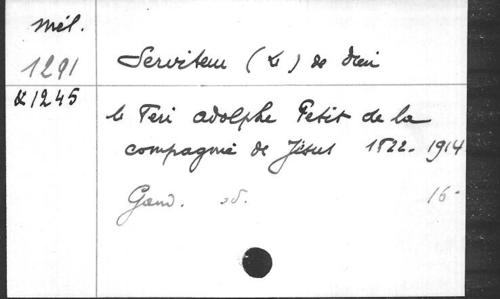 Mél.
1291
& 1245
Serviteur (Le) de Dieu
le Père Adolphe Petit de la
compagnie de Jésus 1822-1914
Gand. sd. 16°